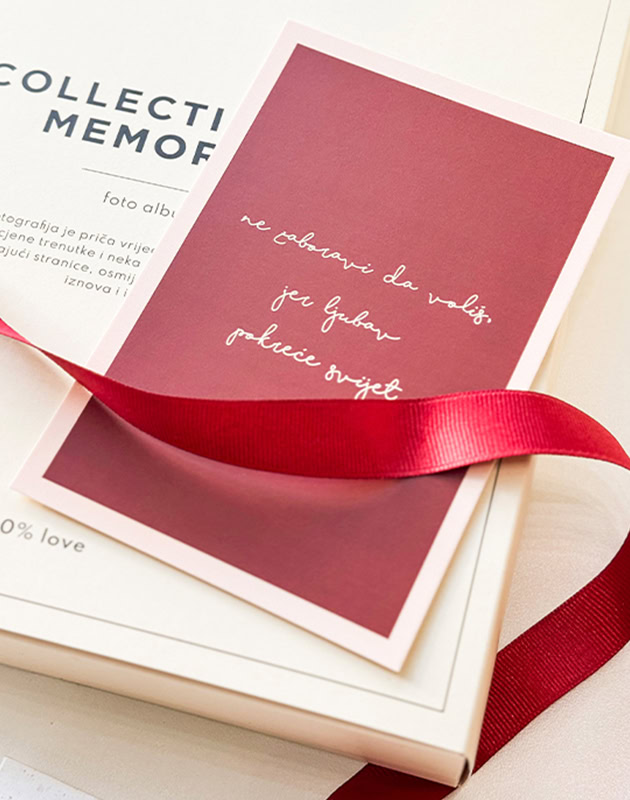 COLLECTI
MEMOR
foto albu
otografija je priča vrijed
cjene trenutke i neka
ajući stranice, osmij
iznova i i
0% love
ne zaboravi da voliš,
jer ljubav
pokreće svijet